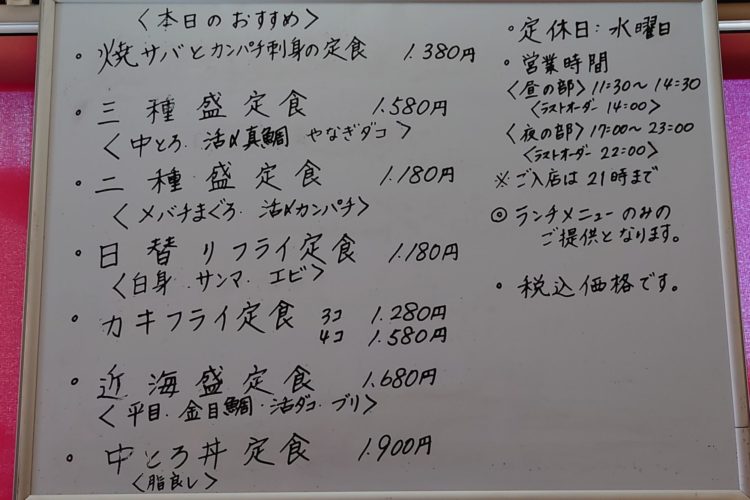 〈本日のおすすめ〉
・焼サバとカンパチ刺身の定食 1.380円
・三種盛定食 1.580円
〈中とろ.活〆真鯛 やなぎダコ〉
・二種盛定食 1.180円
〈メバチまぐろ.活〆カンパチ〉
・日替りフライ定食 1.180円
〈白身.サンマ.エビ〉
・カキフライ定食 3コ 1.280円
4コ 1.580円
・近海盛定食 1.680円
〈平目.金目鯛.活ダコ.ブリ〉
・中とろ丼定食 1.900円
〈脂良し〉
・定休日:水曜日
・営業時間
〈昼の部〉11:30〜14:30
〈ラストオーダー 14:00〉
〈夜の部〉17:00〜23:00
〈ラストオーダー 22:00〉
※ご入店は21時まで
◎ランチメニューのみの
ご提供となります。
・税込価格です。